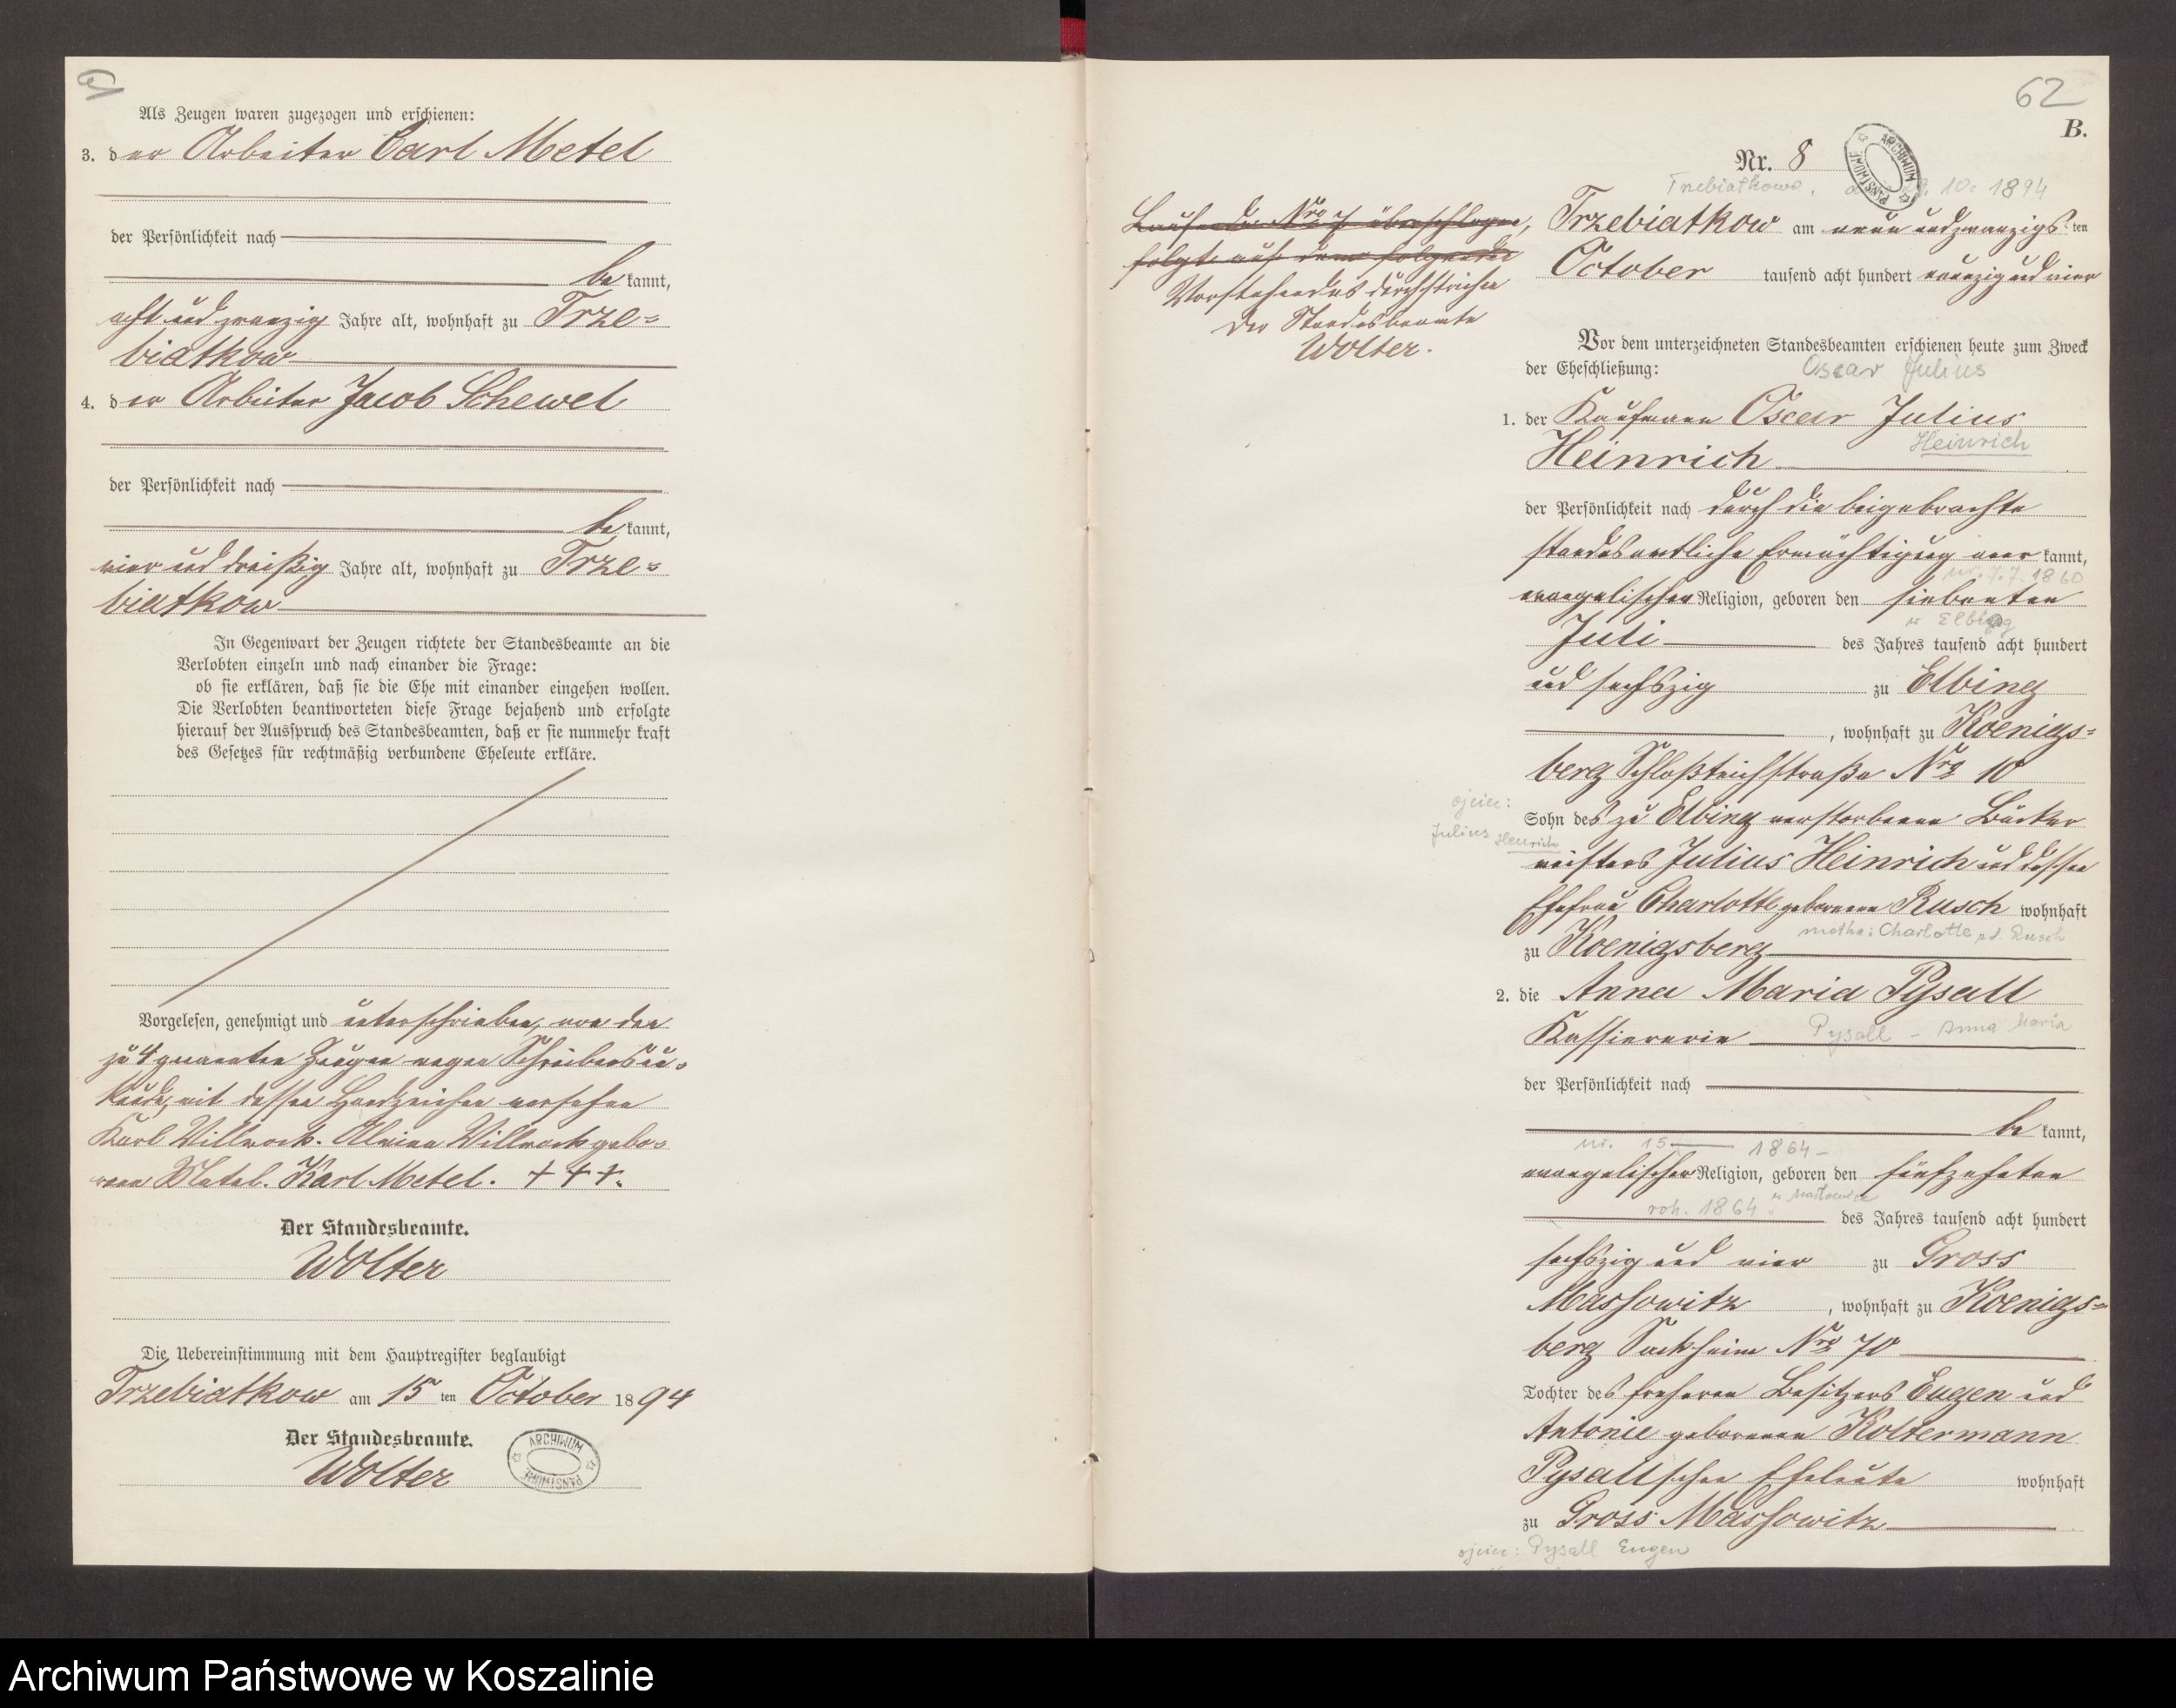 Als Zeugen waren zugezogen und erschienen:
3. der Arbeiter Carl Metel
der Persönlichkeit nach
be kannt,
acht und zwanzig Jahre alt, wohnhaft zu Trze=
biatkow
4. der Arbeiter Jacob Schewel
der Persönlichkeit nach
be kannt,
vier und dreißig Jahre alt, wohnhaft zu Trze=
biatkow
In Gegenwart der Zeugen richtete der Standesbeamte an die
Verlobten einzeln und nach einander die Frage:
ob sie erklären, daß sie die Ehe mit einander eingehen wollen.
Die Verlobten beantworteten diese Frage bejahend und erfolgte
hierauf der Ausspruch des Standesbeamten, daß er sie nunmehr kraft
des Gesetzes für rechtmäßig verbundene Eheleute erkläre.
Vorgelesen, genehmigt und unterschrieben, von den
zu 4 genannten Zeugen wegen Schreibensun=
kunde, mit dessen Handzeichen versehen
Karl Villwock. Alwine Villwock gebo=
rene Metel. Karl Metel. +++.
Der Standesbeamte.
Wolter
Die Uebereinstimmung mit dem Hauptregister beglaubigt
Trzebiatkow am 15 ten October 1894
Der Standesbeamte.
Wolter
ARCHIWUM PAŃSTWOWE
62
B.
Nr. 8
ARCHIWUM PAŃSTWOWE
Trzebiatkowo, 10. 1894
Laufende Nro 7 überschlagen,
folgt auf dem folgenden
Vorstehendes durchstrichen
Der Standesbeamte
Wolter.
Trzebiatkow am neun und zwanzigs ten
October tausend acht hundert neunzig und vier
Vor dem unterzeichneten Standesbeamten erschienen heute zum Zweck
der Eheschließung:
Oscar Julius
1. der Kaufmann Oscar Julius
Heinrich
Heinrich
der Persönlichkeit nach durch die beigebrachte
standesamtliche Ermächtigung aner kannt,
ur. 7.7.1860
evangelischer Religion, geboren den siebenten
w Elbląg
Juli des Jahres tausend acht hundert
und sechszig zu Elbing
, wohnhaft zu Koenigs=
berg Schloßteichstraße Nro 10
ojciec:
Julius Heinrich
Sohn des zu Elbing verstorbenen Bäcker
meisters Julius Heinrich und dessen
Ehefrau Charlotte geborenen Rusch wohnhaft
matka: Charlotte z d. Rusch
zu Koenigsberg
2. die Anna Maria Pysall
Kassiererin
Pysall – Anna Maria
der Persönlichkeit nach
be kannt,
ur. 15 1864 –
evangelischer Religion, geboren den fünfzehnten
rok. 1864
des Jahres tausend acht hundert
sechszig und vier zu Gross
Massowitz, wohnhaft zu Koenigs=
berg Sackheim Nro 70
Tochter des früheren Besitzers Eugen und
Antonie geborenen Koltermann
Pysallschen Eheleute wohnhaft
zu Gross Massowitz
ojciec: Pysall Eugen
Archiwum Państwowe w Koszalinie